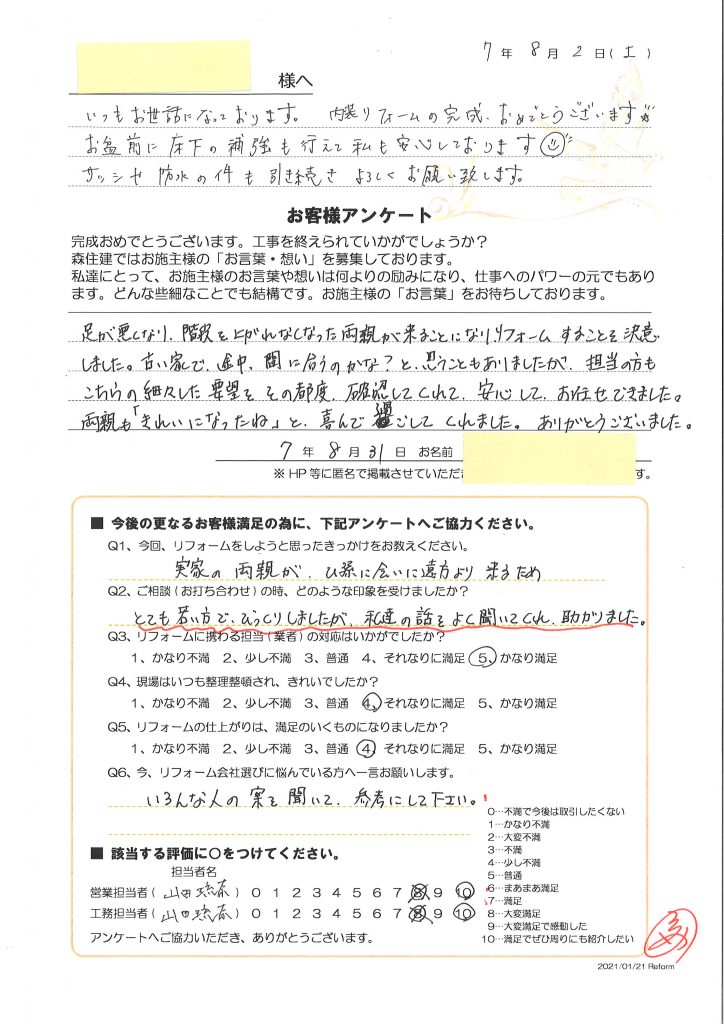 7年 8月 2日(土)
様へ
いつもお世話になっております。 内装リフォームの完成、おめでとうございます
お盆前に床下の補強も行えて私も安心しております
サッシや防水の件も引き続き よろしくお願い致します。
お客様アンケート
完成おめでとうございます。工事を終えられていかがでしょうか?
森住建ではお施主様の「お言葉・想い」を募集しております。
私達にとって、お施主様のお言葉や想いは何よりの励みになり、仕事へのパワーの元でもあり
ます。どんな些細なことでも結構です。お施主様の「お言葉」をお待ちしております。
足が悪くなり、階段を上がれなくなった両親が来ることになり、リフォームすることを決意
しました。古い家で、途中、間に合うのかな?と、思うこともありましたが、担当の方も
こちらの細々した要望をその都度、確認してくれて、安心して、お任せできました。
両親も「きれいになったね」と、喜んで過ごしてくれました。ありがとうございました。
7年 8月 31日 お名前
※HP等に匿名で掲載させていただき す。
■ 今後の更なるお客様満足の為に、下記アンケートへご協力ください。
Q1、今回、リフォームをしようと思ったきっかけをお教えください。
実家の両親が、ひ孫に会いに遠方より来るため
Q2、ご相談(お打ち合わせ)の時、どのような印象を受けましたか?
とても若い方で、びっくりしましたが、私達の話をよく聞いてくれ、助かりました。
Q3、リフォームに携わる担当(業者)の対応はいかがでしたか?
1、かなり不満 2、少し不満 3、普通 4、それなりに満足 5、かなり満足
Q4、現場はいつも整理整頓され、きれいでしたか?
1、かなり不満 2、少し不満 3、普通 4、それなりに満足 5、かなり満足
Q5、リフォームの仕上がりは、満足のいくものになりましたか?
1、かなり不満 2、少し不満 3、普通 4、それなりに満足 5、かなり満足
Q6、今、リフォーム会社選びに悩んでいる方へ一言お願いします。
いろんな人の案を聞いて、参考にして下さい。
■ 該当する評価に○をつけてください。
担当者名
営業担当者(山田 ) 0 1 2 3 4 5 6 7 8 9 10
工務担当者(山田 ) 0 1 2 3 4 5 6 7 8 9 10
アンケートへご協力いただき、ありがとうございます。
0…不満で今後は取引したくない
1…かなり不満
2…大変不満
3…不満
4…少し不満
5…普通
6…まあまあ満足
7…満足
8…大変満足
9…大変満足で感動した
10…満足でぜひ周りにも紹介したい
2021/01/21 Reform